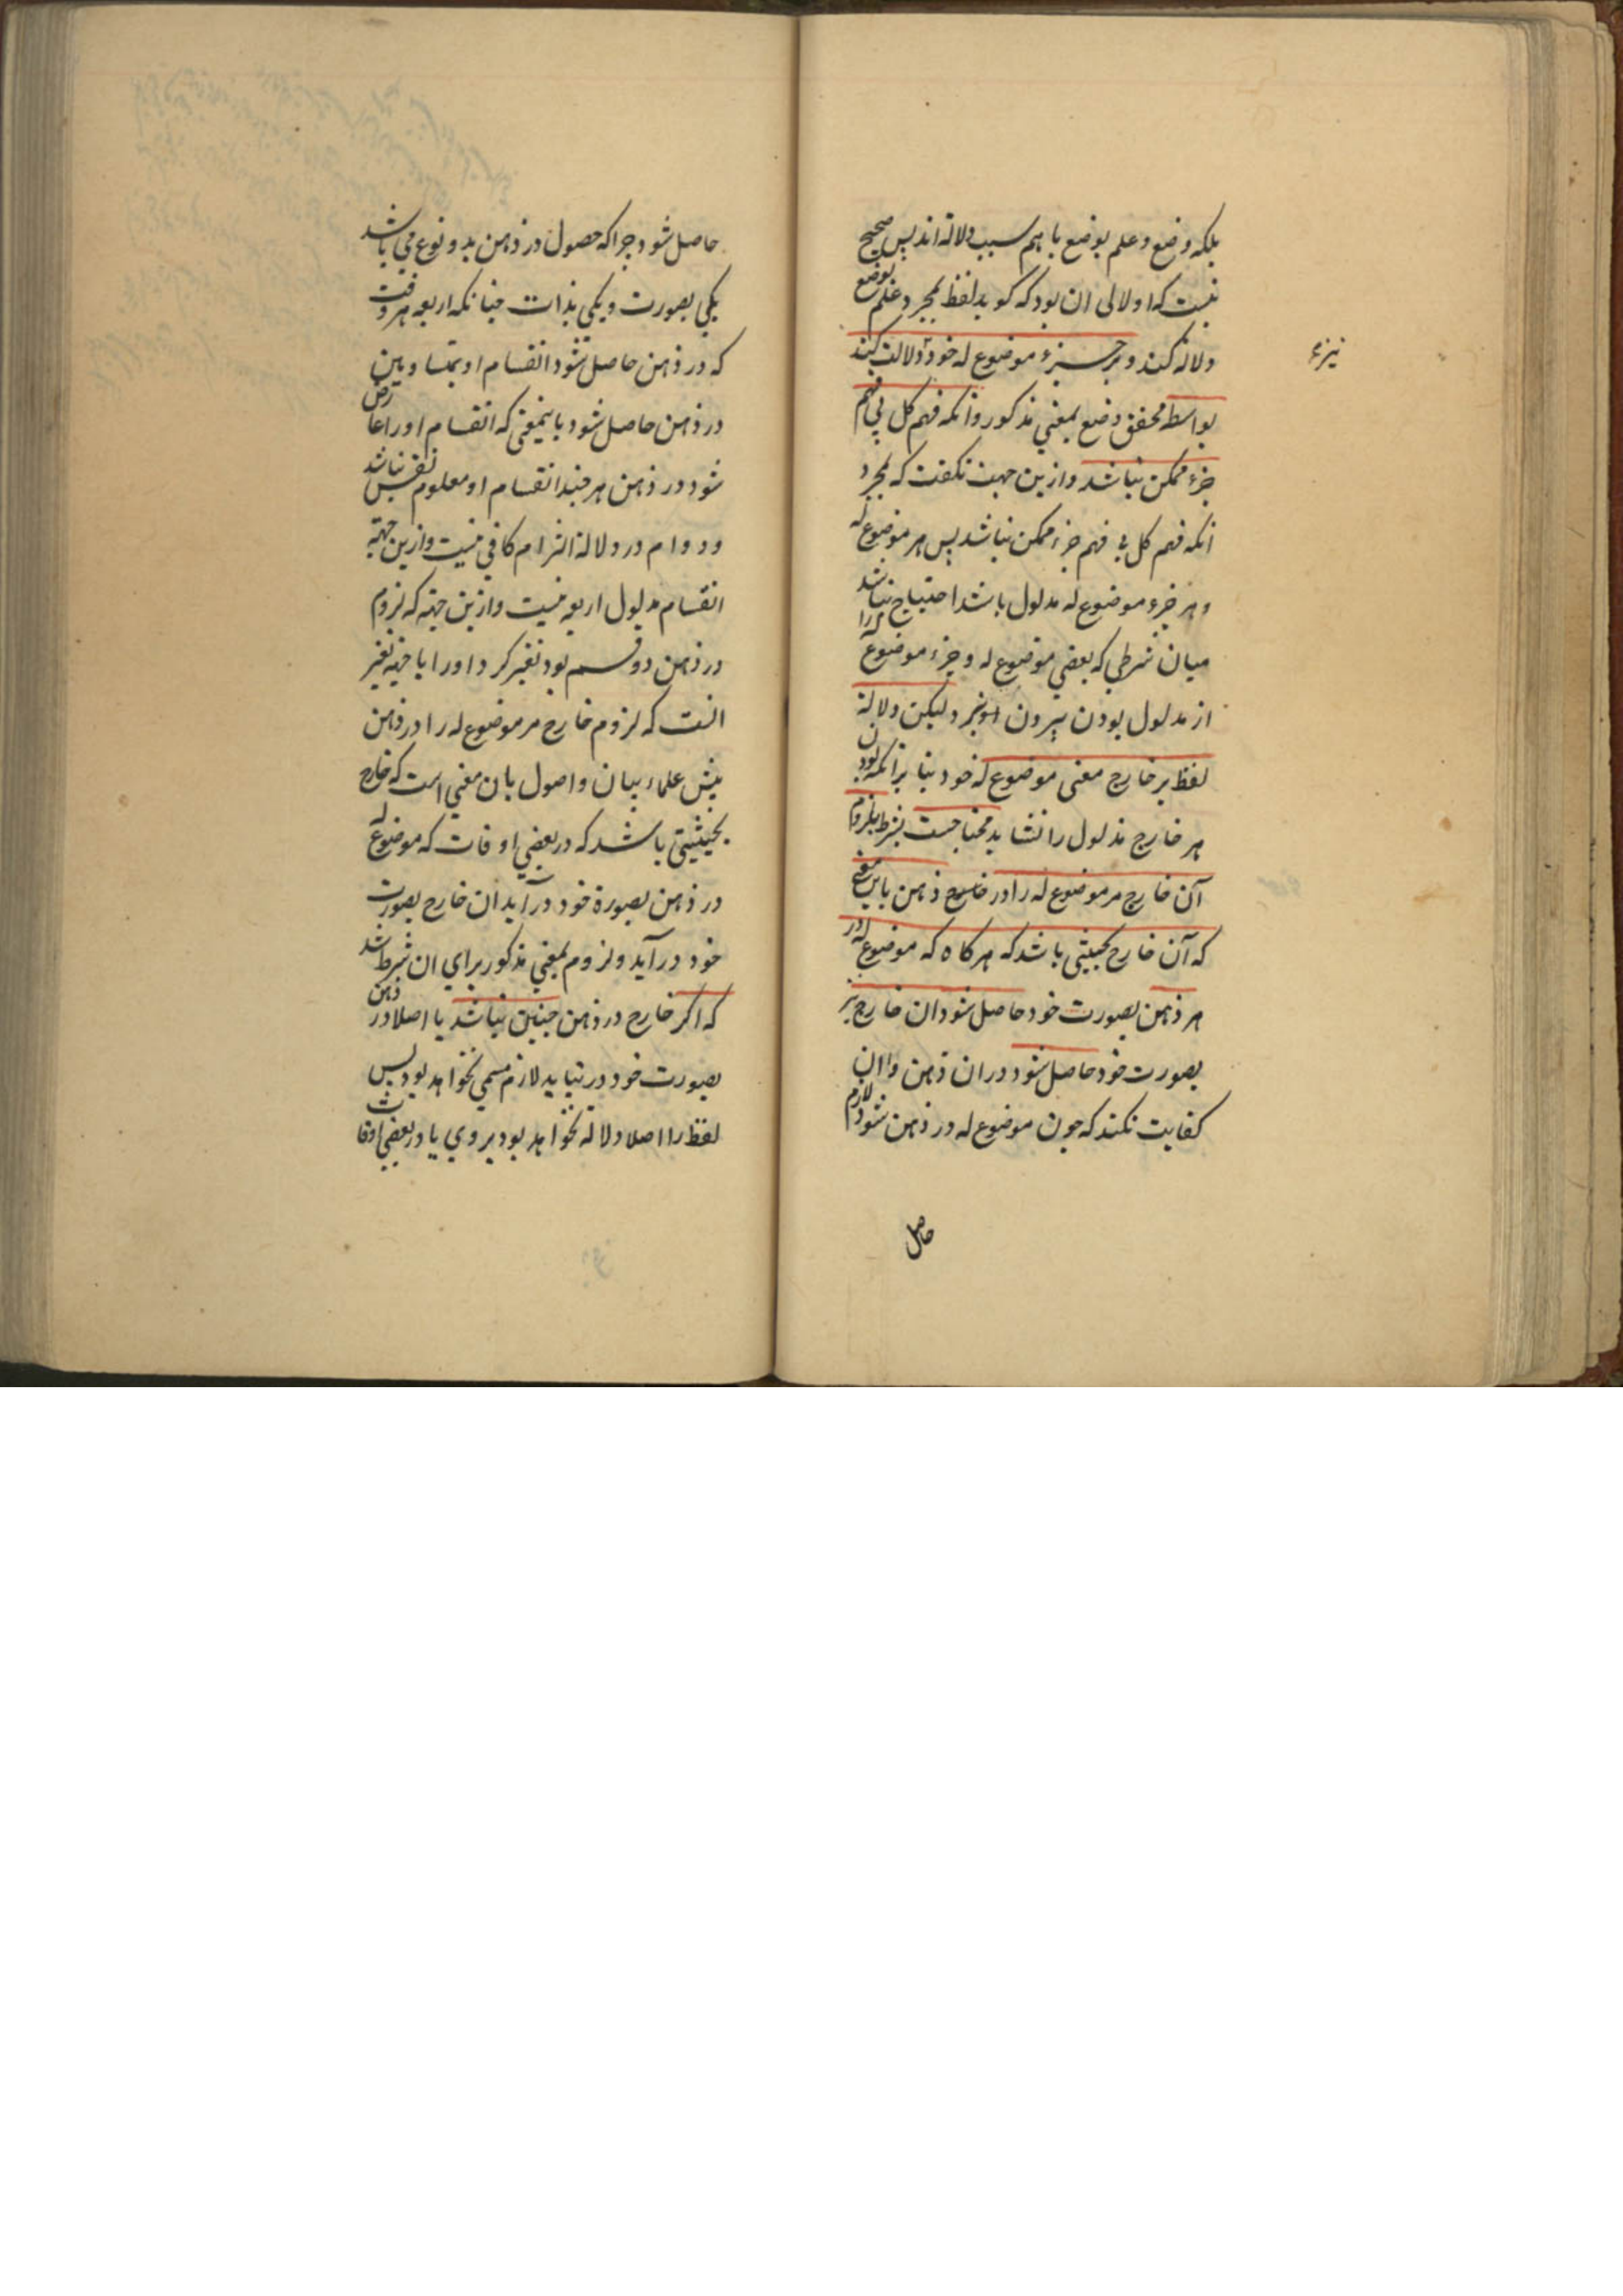 بلکه وضع و علم بوضع با هم سبب دلالة اند پس صحیح
نیست که اولا لی ان بود که کوید لفظ بمجرد علم بوضع
دلالة کند و بر جزء موضوع له خود دلالت کند
نیزء
بواسطه تحقق وضع بمعنی مذکور و آنکه فهم کل بی فهم
جزء ممکن نباشد و ازین جهت نکفت که بمجرد
انکه فهم کل بی فهم جزء ممکن نباشد پس هر موضوع له
و هر جزء موضوع له مدلول باشد احتیاج نباشد
میان شرطی که بعضی موضوع له و جزء موضوع له را
از مدلول بودن بیرون برد ولیکن دلالة
لفظ بر خارج معنی موضوع له خود بنا بر انکه بودن
هر خارج مدلول را نشاید محتاجست بشرط لزوم
آن خارج مر موضوع له را در ذهن باین معنی
که آن خارج بحیثیتی باشد که هر کاه که موضوع له در
هر ذهن بصورت خود حاصل شود ان خارج نیز
بصورت خود حاصل شود در ان ذهن و ان
کفایت نکند که چون موضوع له در ذهن شود لازم
حاصل
حاصل شود چرا که حصول در ذهن بدو نوع می باشد
یکی بصورت و یکی بذات چنانکه اربعه هر وقت
که در ذهن حاصل شود انقسام او بمتساویین
در ذهن حاصل شود باینمعنی که انقسام او را عارض
شود در ذهن هر چند انقسام او معلوم نفس نباشد
و دوام در دلالة التزام کافی نیست و ازین جهة
انقسام مدلول اربعه نیست و ازین جهة که لزوم
در ذهن دو قسم بود تفسیر کرد او را باینجهة تفسیر
انست که لزوم خارج مر موضوع له را در ذهن
پیش علماء بیان و اصول بان معنی است که خارج
بحیثیتی باشد که در بعضی اوقات که موضوع له
در ذهن بصورة خود در آید ان خارج بصورت
خود در آید و لزوم بمعنی مذکور برای ان شرط شد
که اکر خارج در ذهن چنین نباشد یا اصلا در ذهن
بصورت خود در نیاید لازم مسمی نخواهد بود پس
لفظ را اصلا دلالة نخواهد بود بروی یا در بعضی اوقات